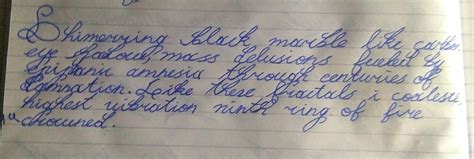 Shimerring black marble like carbon
eye shadow, mass delusions fueled by
amnesia through centuries of
damnation. Like these fractals i coalesce,
highest vibration ninth ring of fire
crowned.